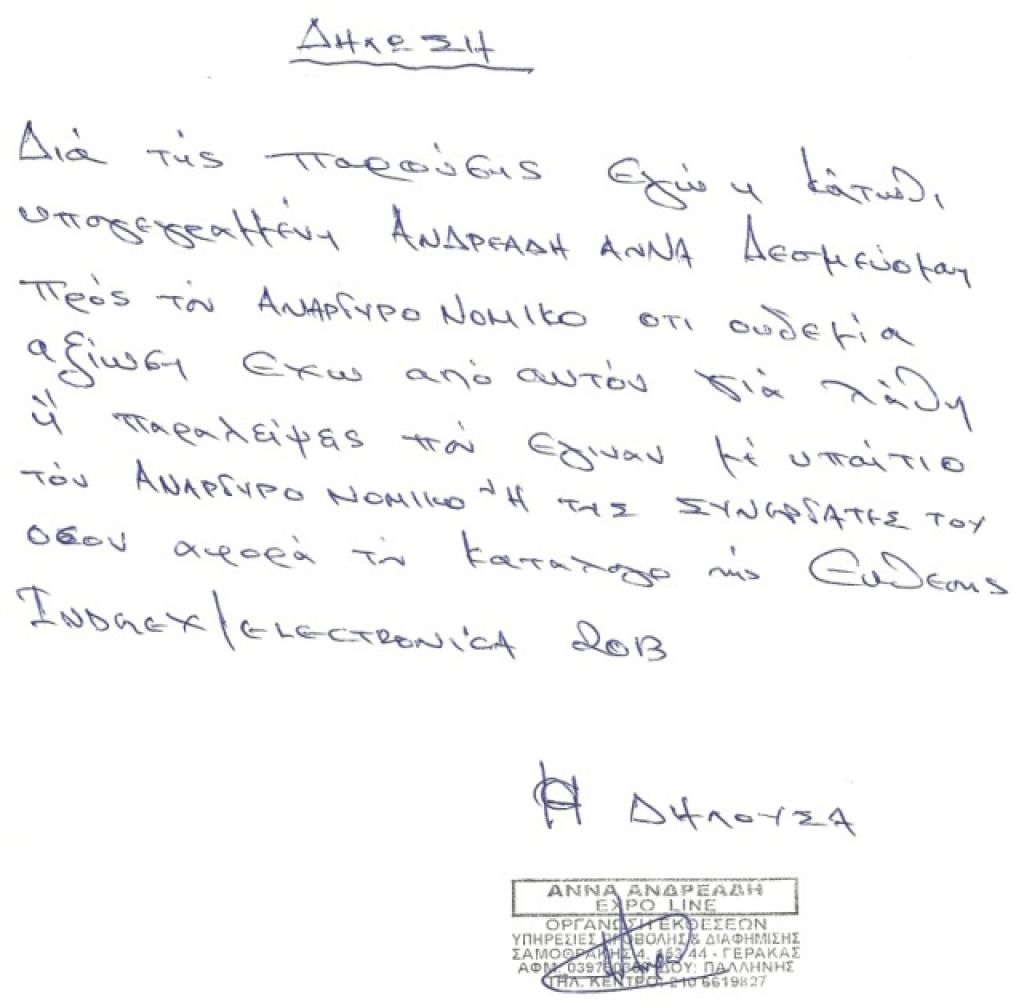 ΔΗΛΩΣΗ
Διά τής παρούσης εγώ η κάτωθι
υπογεγραμμένη ΑΝΔΡΕΑΔΗ ΑΝΝΑ Δεσμεύομαι
πρός τόν ΑΝΑΡΓΥΡΟ ΝΟΜΙΚΟ οτι ουδεμία
αξίωση έχω από αυτόν γιά λάθη
ή παραλείψεις πού έγιναν μέ υπαίτιο
τόν ΑΝΑΡΓΥΡΟ ΝΟΜΙΚΟ Ή ΤΗΣ ΣΥΝΕΡΓΑΤΕΣ ΤΟΥ
οσον αφορά τό κατάλογο τής Εκθεσης
INDREX/ELECTRONICA 2013
Η ΔΗΛΟΥΣΑ
ΑΝΝΑ ΑΝΔΡΕΑΔΗ
EXPO LINE
ΟΡΓΑΝΩΣΗ ΕΚΘΕΣΕΩΝ
ΥΠΗΡΕΣΙΕΣ ΠΡΟΒΟΛΗΣ & ΔΙΑΦΗΜΙΣΗΣ
ΣΑΜΟΘΡΑΚΗΣ 4, 153 44 - ΓΕΡΑΚΑΣ
ΑΦΜ: ΔΟΥ: ΠΑΛΛΗΝΗΣ
ΤΗΛ. ΚΕΝΤΡΟ: 210 6619827